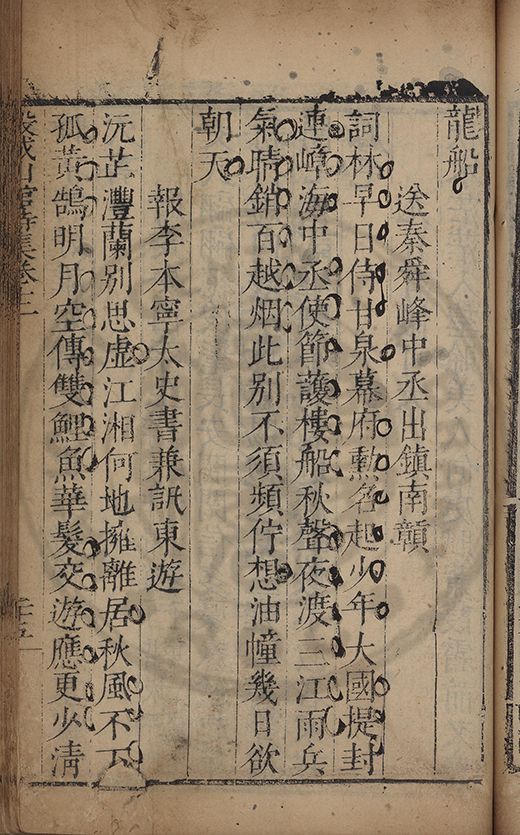 龍船
送秦舜峰中丞出鎮南贛
詞林早日侍甘泉幕府勲名起少年大國提封
連嶂海中丞使節護樓船秋聲夜渡三江雨兵
氣晴銷百越烟此别不須頻佇想油幢幾日欲
朝天
報李本寧太史書兼訊東遊
沅芷灃蘭别思虚江湘何地擁離居秋風不下
孤黄鵠明月空傳雙鯉魚華髮交遊應更少淸
城山館詩集卷